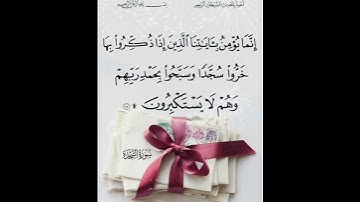 إِنَّمَا يُؤْمِنُ بِـَٔايَٰتِنَا ٱلَّذِينَ إِذَا ذُكِّرُوا۟ بِهَا
خَرُّوا۟ سُجَّدًا وَسَبَّحُوا۟ بِحَمْدِ رَبِّهِمْ
وَهُمْ لَا يَسْتَكْبِرُونَ
سُورَةُ السَّجْدَة